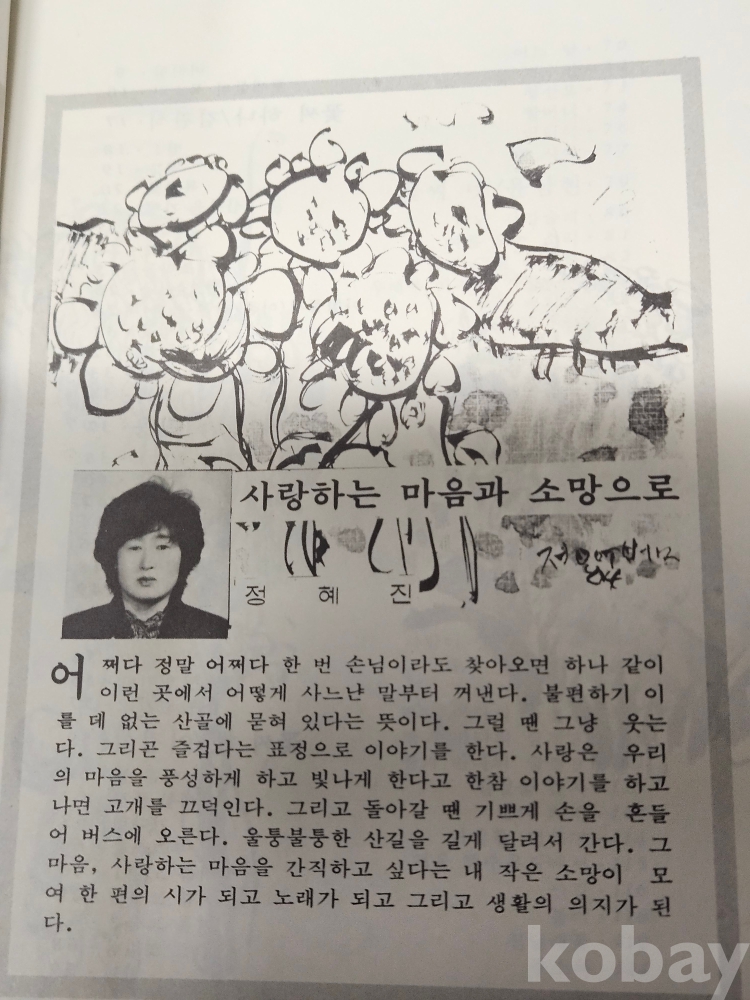 사랑하는 마음과 소망으로
정 혜 진
어쩌다 정말 어쩌다 한 번 손님이라도 찾아오면 하나 같이
이런 곳에서 어떻게 사느냔 말부터 꺼낸다. 불편하기 이
를 데 없는 산골에 묻혀 있다는 뜻이다. 그럴 땐 그냥 웃는
다. 그리곤 즐겁다는 표정으로 이야기를 한다. 사랑은 우리
의 마음을 풍성하게 하고 빛나게 한다고 한참 이야기를 하고
나면 고개를 끄덕인다. 그리고 돌아갈 땐 기쁘게 손을 흔들
어 버스에 오른다. 울퉁불퉁한 산길을 길게 달려서 간다. 그
마음, 사랑하는 마음을 간직하고 싶다는 내 작은 소망이 모
여 한 편의 시가 되고 노래가 되고 그리고 생활의 의지가 된
다.
kobay